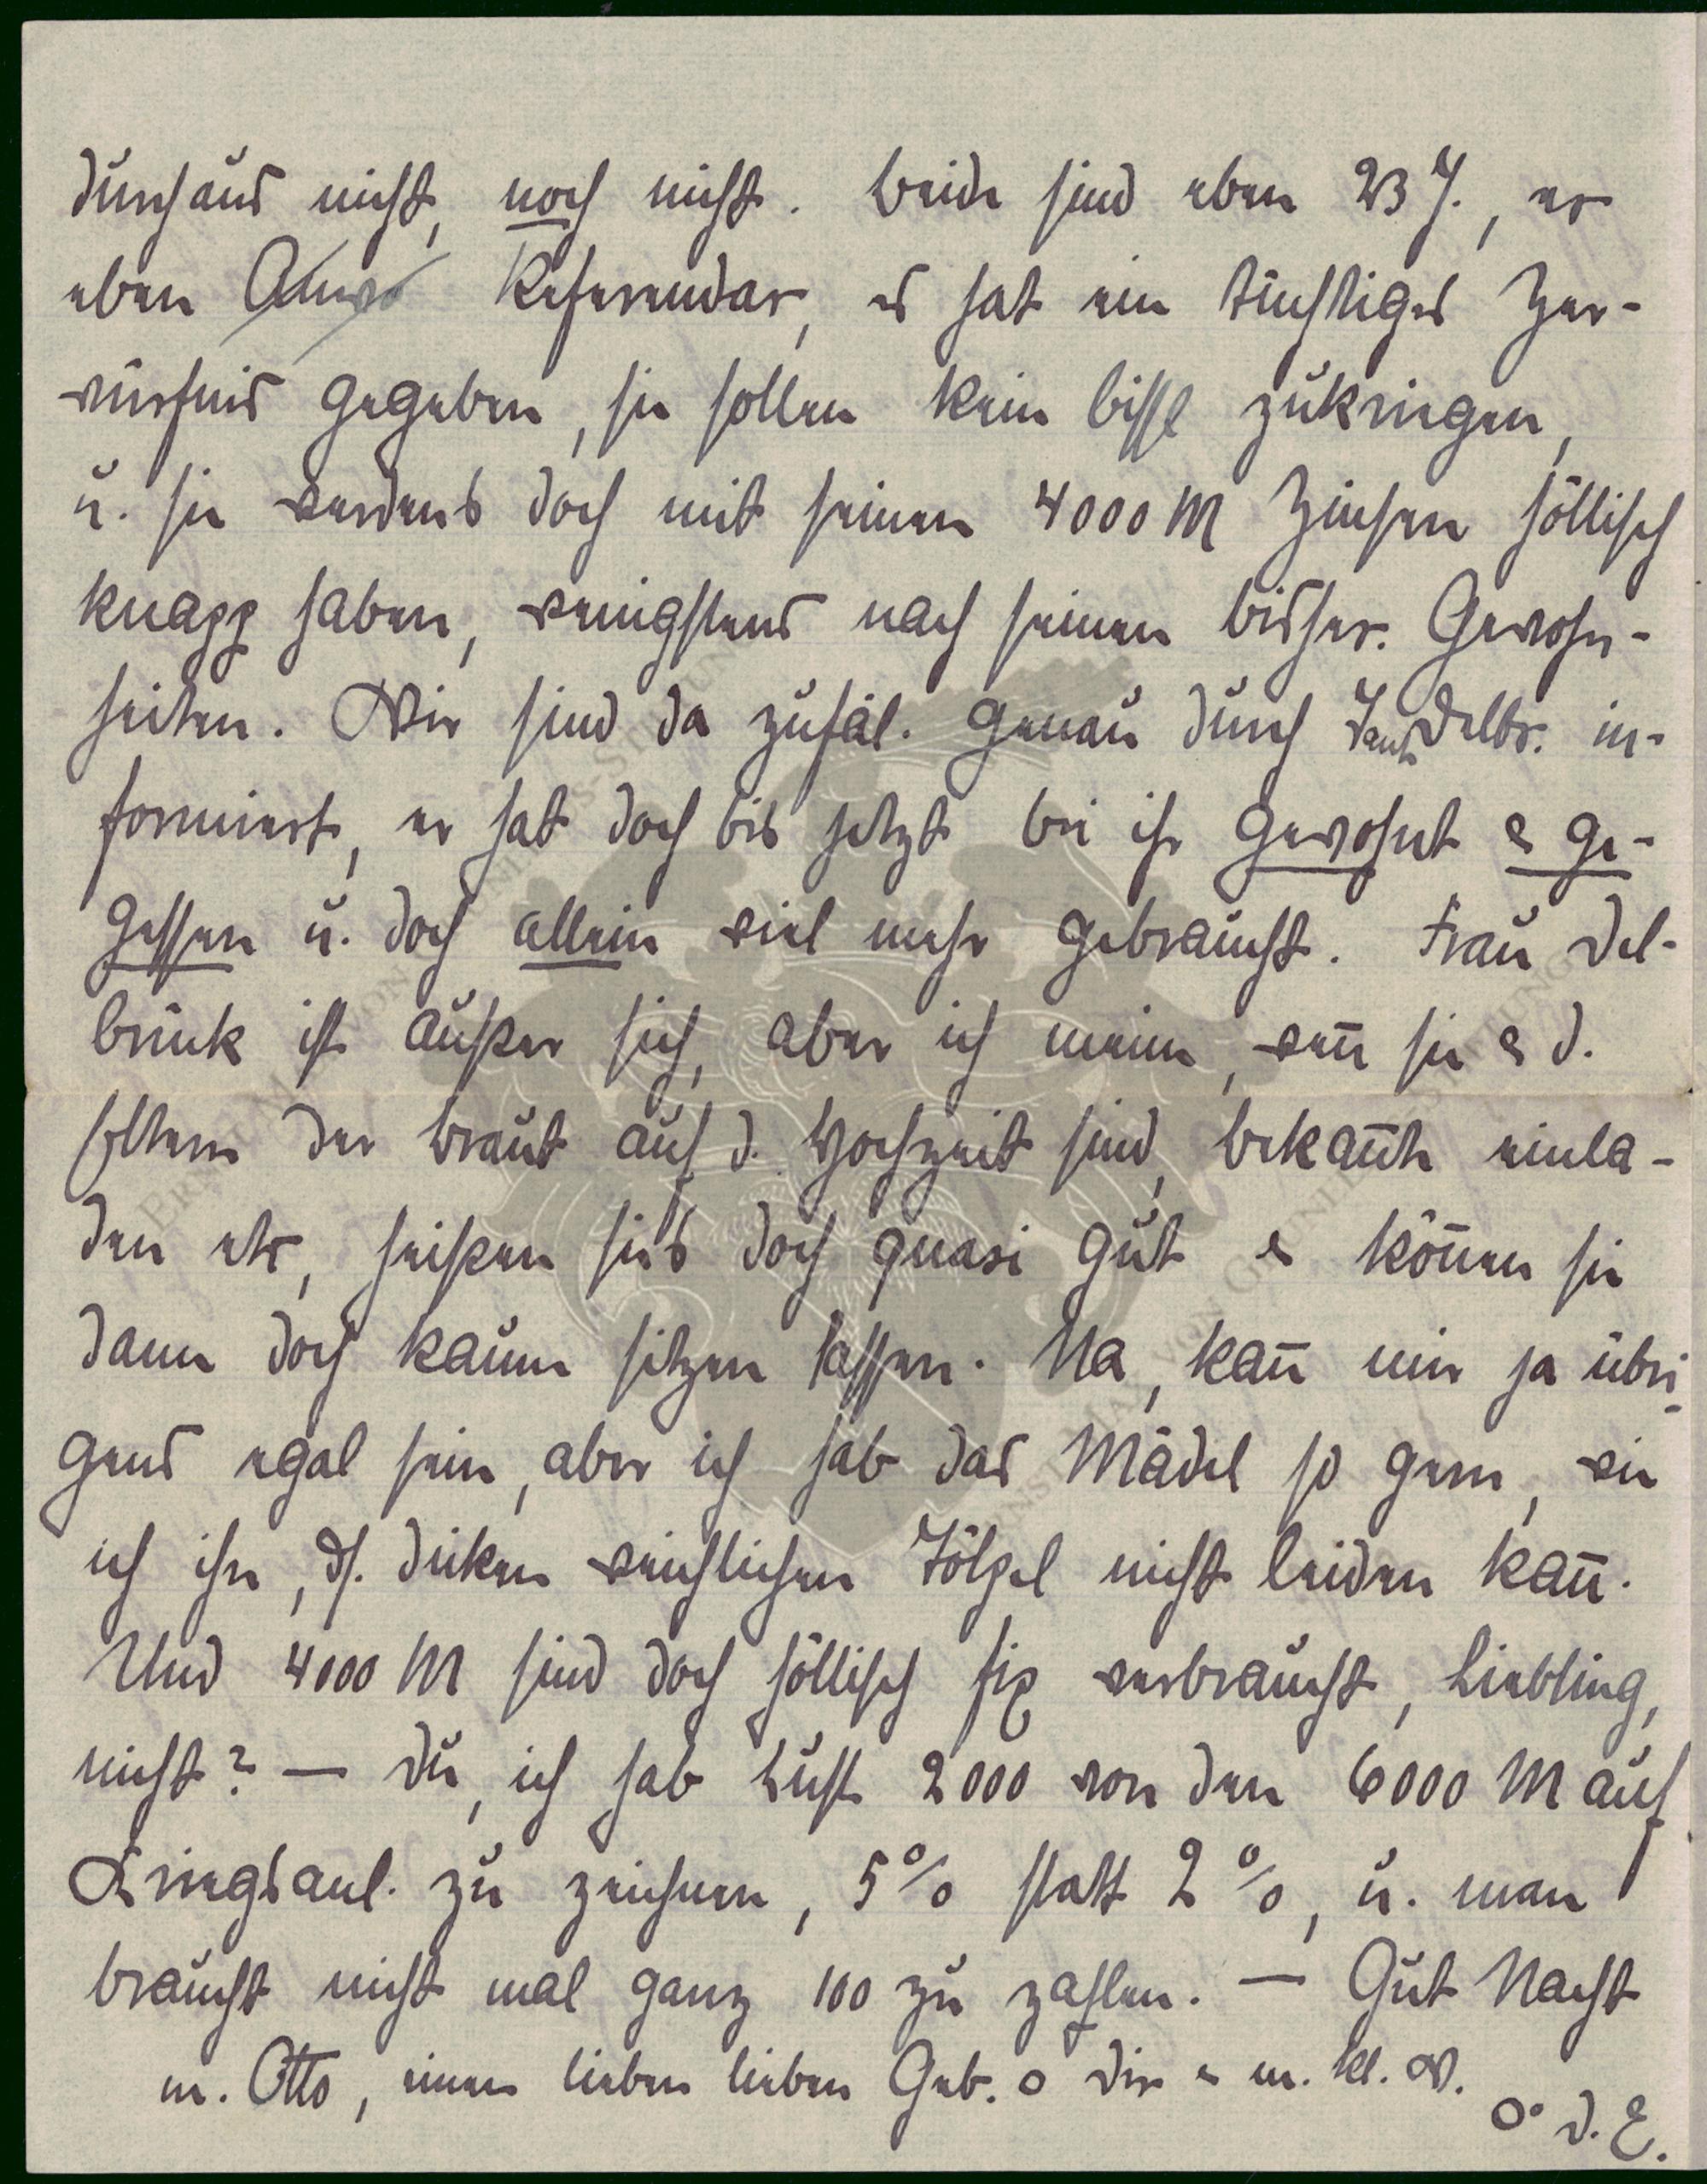 durchaus nicht, noch nicht. Beide sind eben 23 J., er
eben Referendar, es hat ein tüchtiges Zer-
würfnis gegeben, sie sollen kein bissl zukriegen,
u. sie werdens doch mit seinen 4000 M Zinsen höllisch
knapp haben, wenigstens nach seinen bisher. Gewohn-
heiten. Wir sind da zufäl. genau durch Tante Delbr. in-
formiert, er hat doch bis jetzt bei ihr gewohnt & ge-
gessen u. doch allein viel mehr gebraucht. Frau Del-
brück ist außer sich, aber ich meine, wen̄ sie & d.
Eltern der Braut auf d. Hochzeit sind, Bekan̄te einla-
den etc, heißen sies doch quasi gut & kön̄en sie
dann doch kaum sitzen lassen. Na, kan̄ mir ja übri-
gens egal sein, aber ich hab das Mädel so gern, wie
ich ihn, ds. dicken weichlichen Tölpel nicht leiden kan̄.
Und 4000 M sind doch höllisch fix verbraucht, Liebling,
nicht? — Du, ich hab Lust 2000 von den 6000 M auf
Kriegsanl. zu zeichnen, 5 % statt 2 %, u. man
braucht nicht mal ganz 100 zu zahlen. — Gut Nacht
m. Otto, einen lieben lieben Geb. o Dir & m. kl. W.
O. D. E.